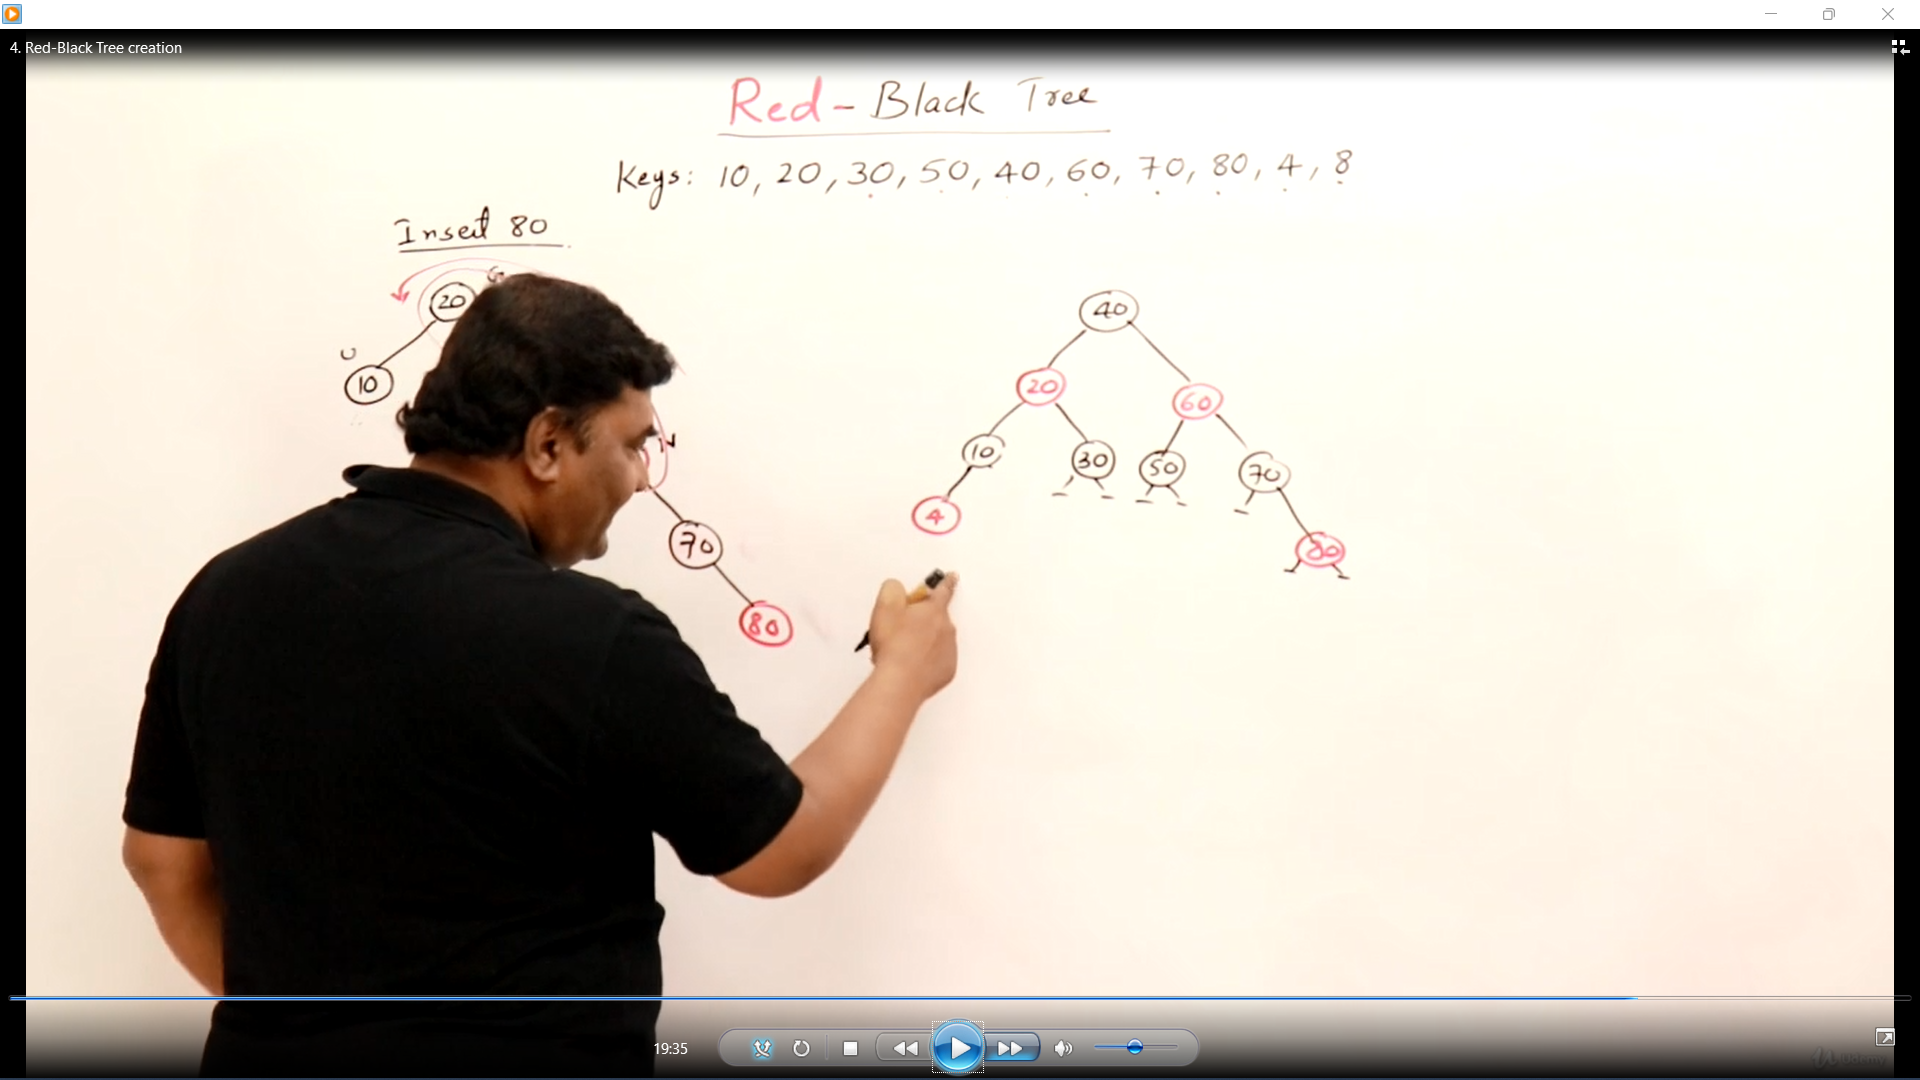 4. Red-Black Tree creation
Red - Black Tree
Keys: 10, 20, 30, 50, 40, 60, 70, 80, 4, 8
Insert 80
20
U
10
70
80
40
20
60
10
30
50
70
4
80
19:35